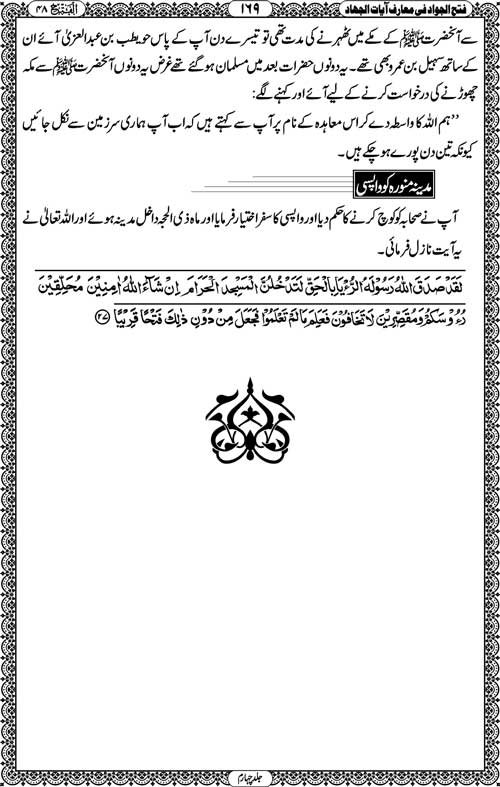 فتح الجواد فی معارف آیات الجہاد ۱۶۹ الفتح ۴۸
سے آنحضرت ﷺ کے مکے میں ٹھہرنے کی مدت تھی تو تیسرے دن آپ کے پاس حویطب بن عبدالعزیٰ آئے ان
کے ساتھ سہیل بن عمرو بھی تھے۔ یہ دونوں حضرات بعد میں مسلمان ہو گئے تھے غرض یہ دونوں آنحضرت ﷺ سے مکہ
چھوڑنے کی درخواست کرنے کے لیے آئے اور کہنے لگے:
’’ہم اللہ کا واسطہ دے کر اس معاہدہ کے نام پر آپ سے کہتے ہیں کہ اب آپ ہماری سرزمین سے نکل جائیں
کیونکہ تین دن پورے ہو چکے ہیں۔
مدینہ منورہ کو واپسی
آپ نے صحابہ کو کوچ کرنے کا حکم دیا اور واپسی کا سفر اختیار فرمایا اور ماہ ذی الحجہ داخل مدینہ ہوئے اور اللہ تعالیٰ نے
یہ آیت نازل فرمائی۔
لَقَدْ صَدَقَ اللّٰهُ رَسُوْلَهُ الرُّءْيَا بِالْحَقِّ لَتَدْخُلُنَّ الْمَسْجِدَ الْحَرَامَ اِنْ شَآءَ اللّٰهُ اٰمِنِيْنَ مُحَلِّقِيْنَ
رُءُوْسَكُمْ وَمُقَصِّرِيْنَ لَا تَخَافُوْنَ فَعَلِمَ مَا لَمْ تَعْلَمُوْا فَجَعَلَ مِنْ دُوْنِ ذٰلِكَ فَتْحًا قَرِيْبًا ﴿۲۷﴾
جلد چہارم